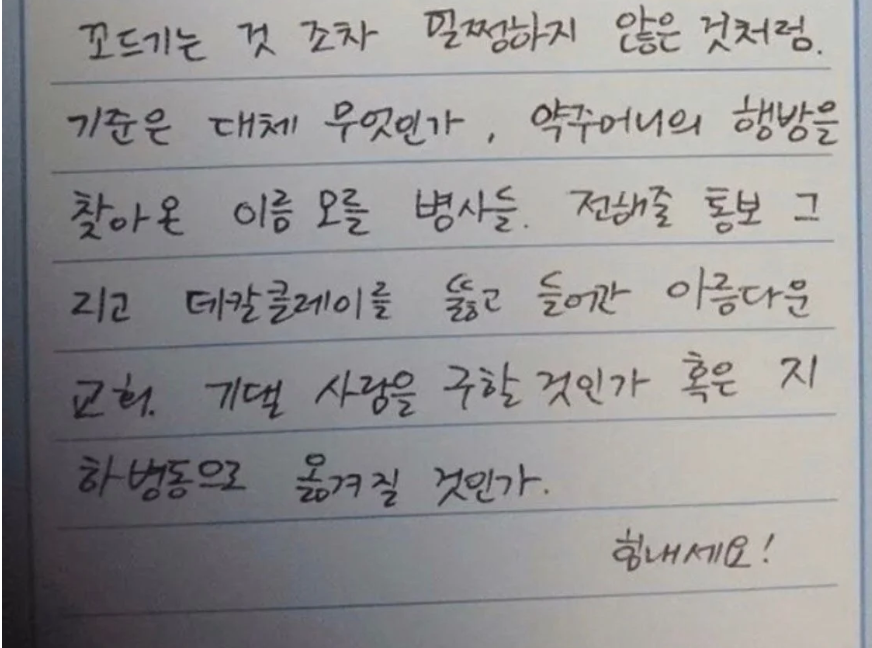 꼬드기는 것 조차 멀쩡하지 않은 것처럼.
기준은 대체 무엇인가, 약주머니의 행방을
찾아온 이름 모를 병사들. 전해줄 통보 그
리고 데칼클레이를 뚫고 들어간 아름다운
교회. 기댈 사랑을 구할 것인가 혹은 지
하병동으로 옮겨질 것인가.
힘내세요!